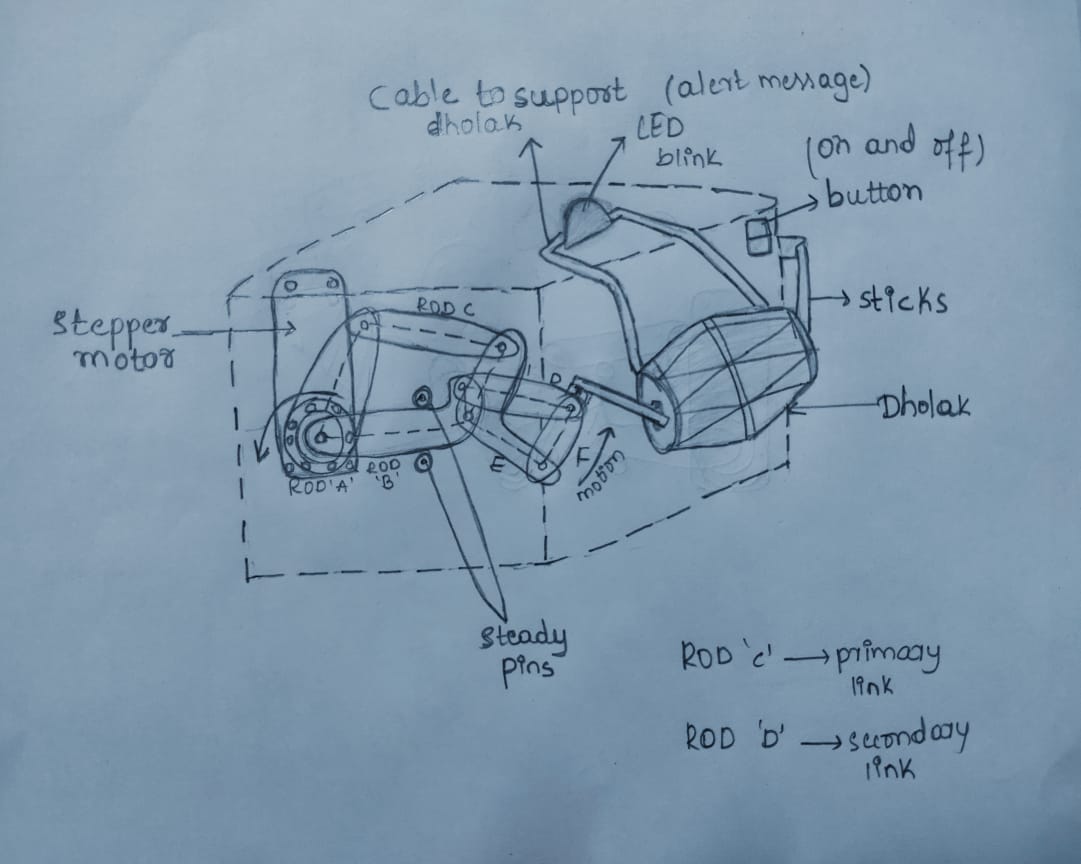 Cable to support
dholak
(alert message)
LED
blink
(on and off)
button
sticks
Stepper
motor
ROD C
D
Dholak
E
F
motion
ROD 'A'
ROD
'B'
Steady
pins
ROD 'C' → primary
link
ROD 'D' → secondary
link